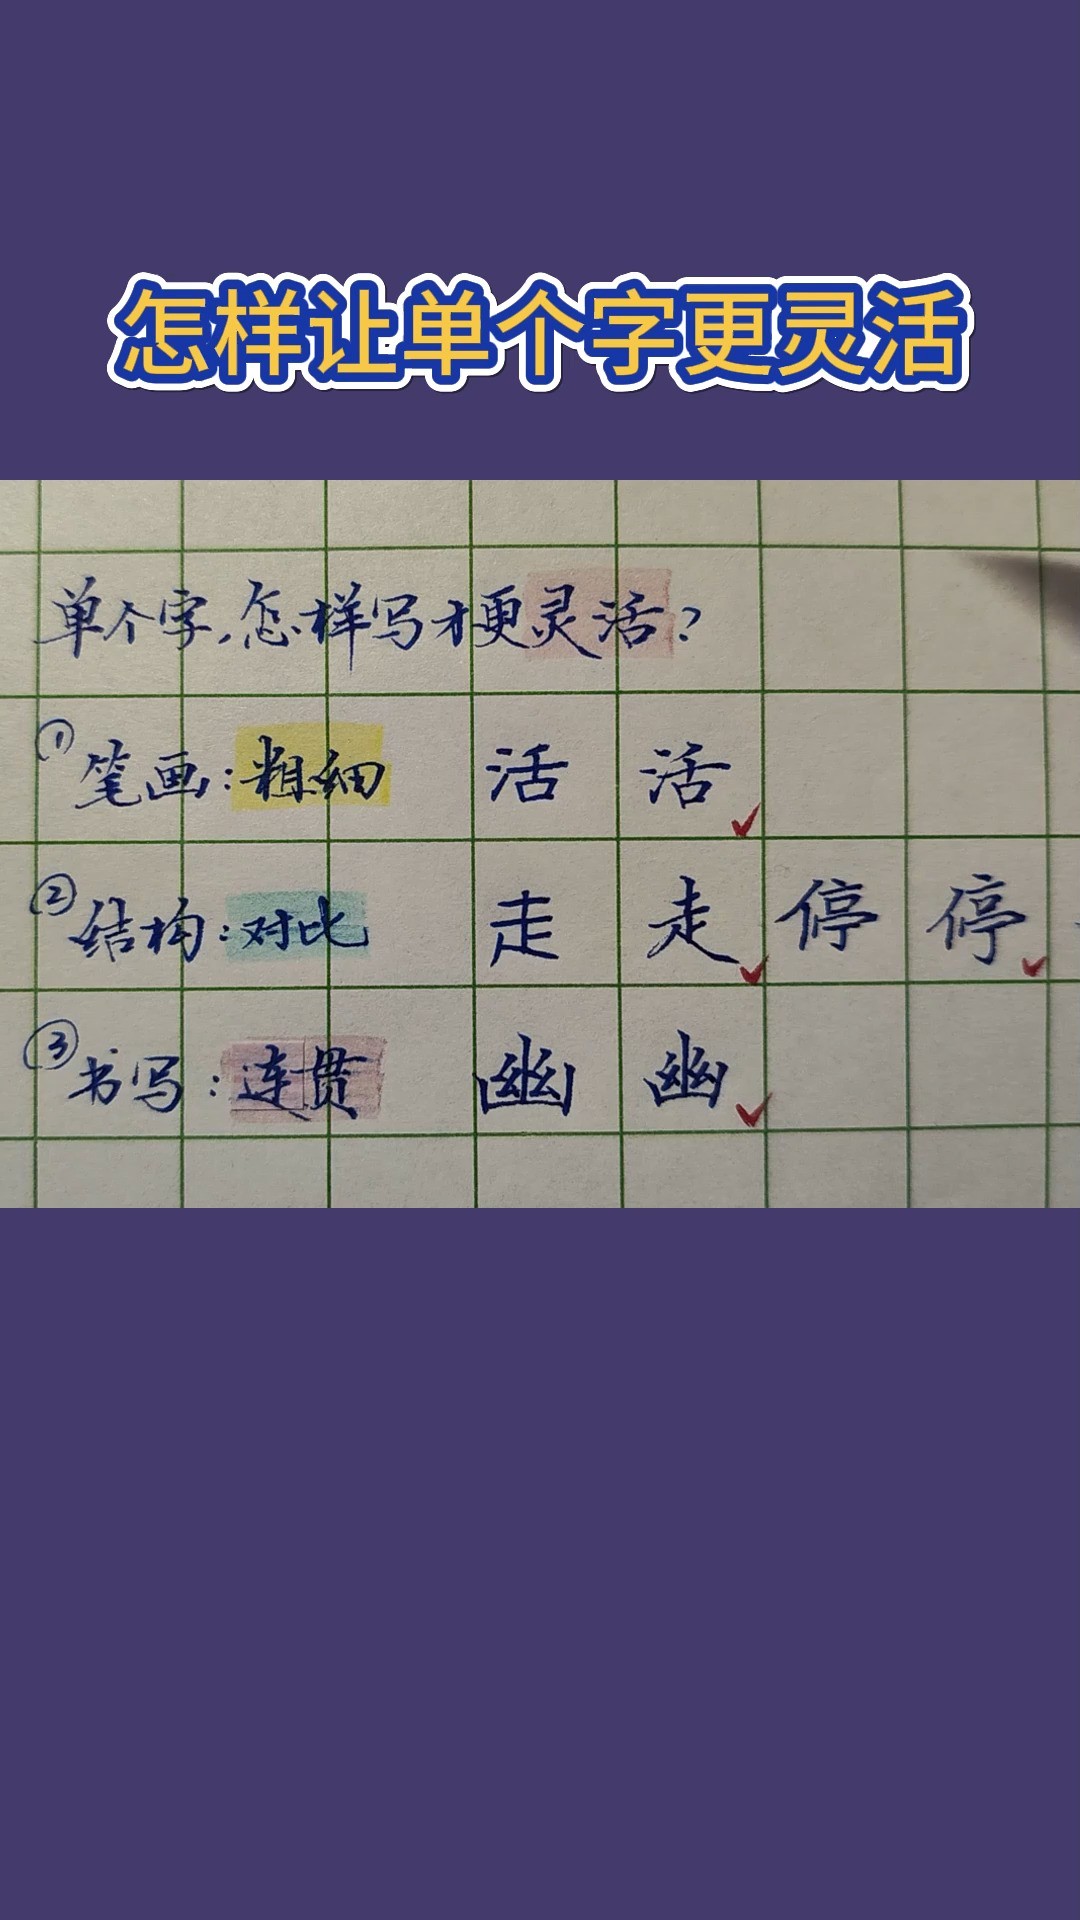 怎样让单个字更灵活
单个字,怎样写才更灵活?
①笔画:粗细 活 活✓
②结构:对比 走 走✓ 停 停✓
③书写:连贯 幽 幽✓